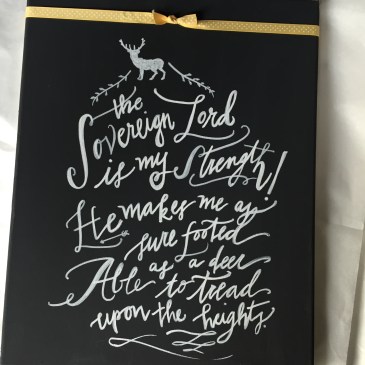 the
Sovereign Lord
is my Strength!
He makes me as
sure footed
as a deer
Able to tread
upon the heights.